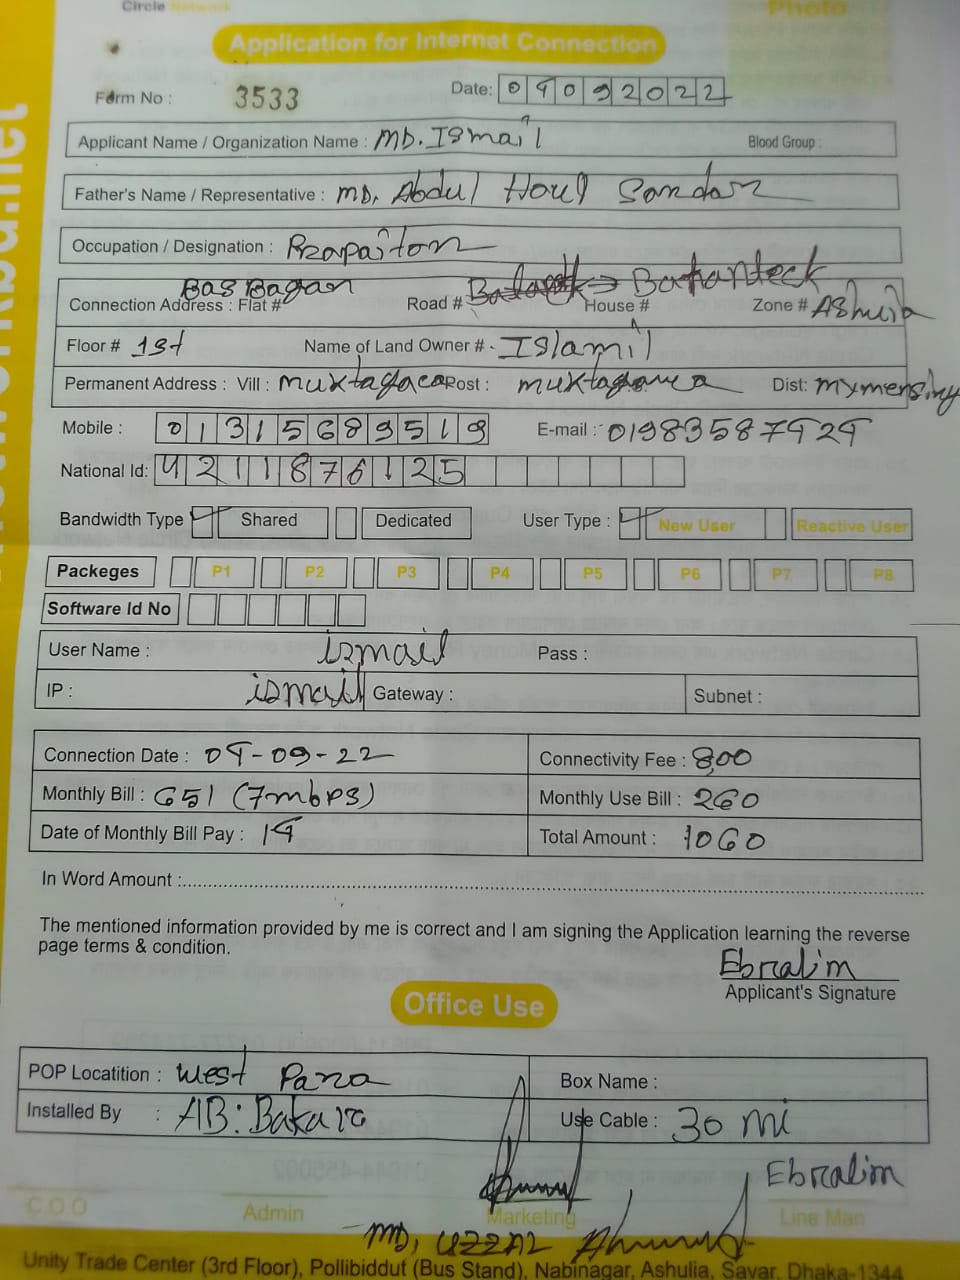 Circle Network
Photo
Application for Internet Connection
Form No : 3533
Date: 04092022
Applicant Name / Organization Name : MD. Ismail
Blood Group :
Father's Name / Representative : MD. Abdul Houl Sordar
Occupation / Designation :
Bas Bagan Batanteck
Connection Address : Flat # Road # House # Zone # Ashulia
Floor # 1st Name of Land Owner # - Islamil
Permanent Address : Vill : muktagaca Post : Dist: mymensing
Mobile : 01315689519 E-mail : 01983587424
National Id: 4211876125
Bandwidth Type Shared Dedicated User Type : New User Reactive User
Packeges P1 P2 P3 P4 P5 P6 P7 P8
Software Id No
User Name : ismail Pass :
IP : ismail Gateway : Subnet :
Connection Date : 04-09-22 Connectivity Fee : 800
Monthly Bill : 651 (7mbps) Monthly Use Bill : 260
Date of Monthly Bill Pay : 14 Total Amount : 1060
In Word Amount :
The mentioned information provided by me is correct and I am signing the Application learning the reverse
page terms & condition.
Ebralim
Applicant's Signature
Office Use
POP Locatition : West Para Box Name :
Installed By : AB: Bakar Use Cable : 30 mi
Ebralim
C O O Admin Marketing Line Man
MD, UZZAL
Unity Trade Center (3rd Floor), Pollibiddut (Bus Stand), Nabinagar, Ashulia, Savar, Dhaka-1344